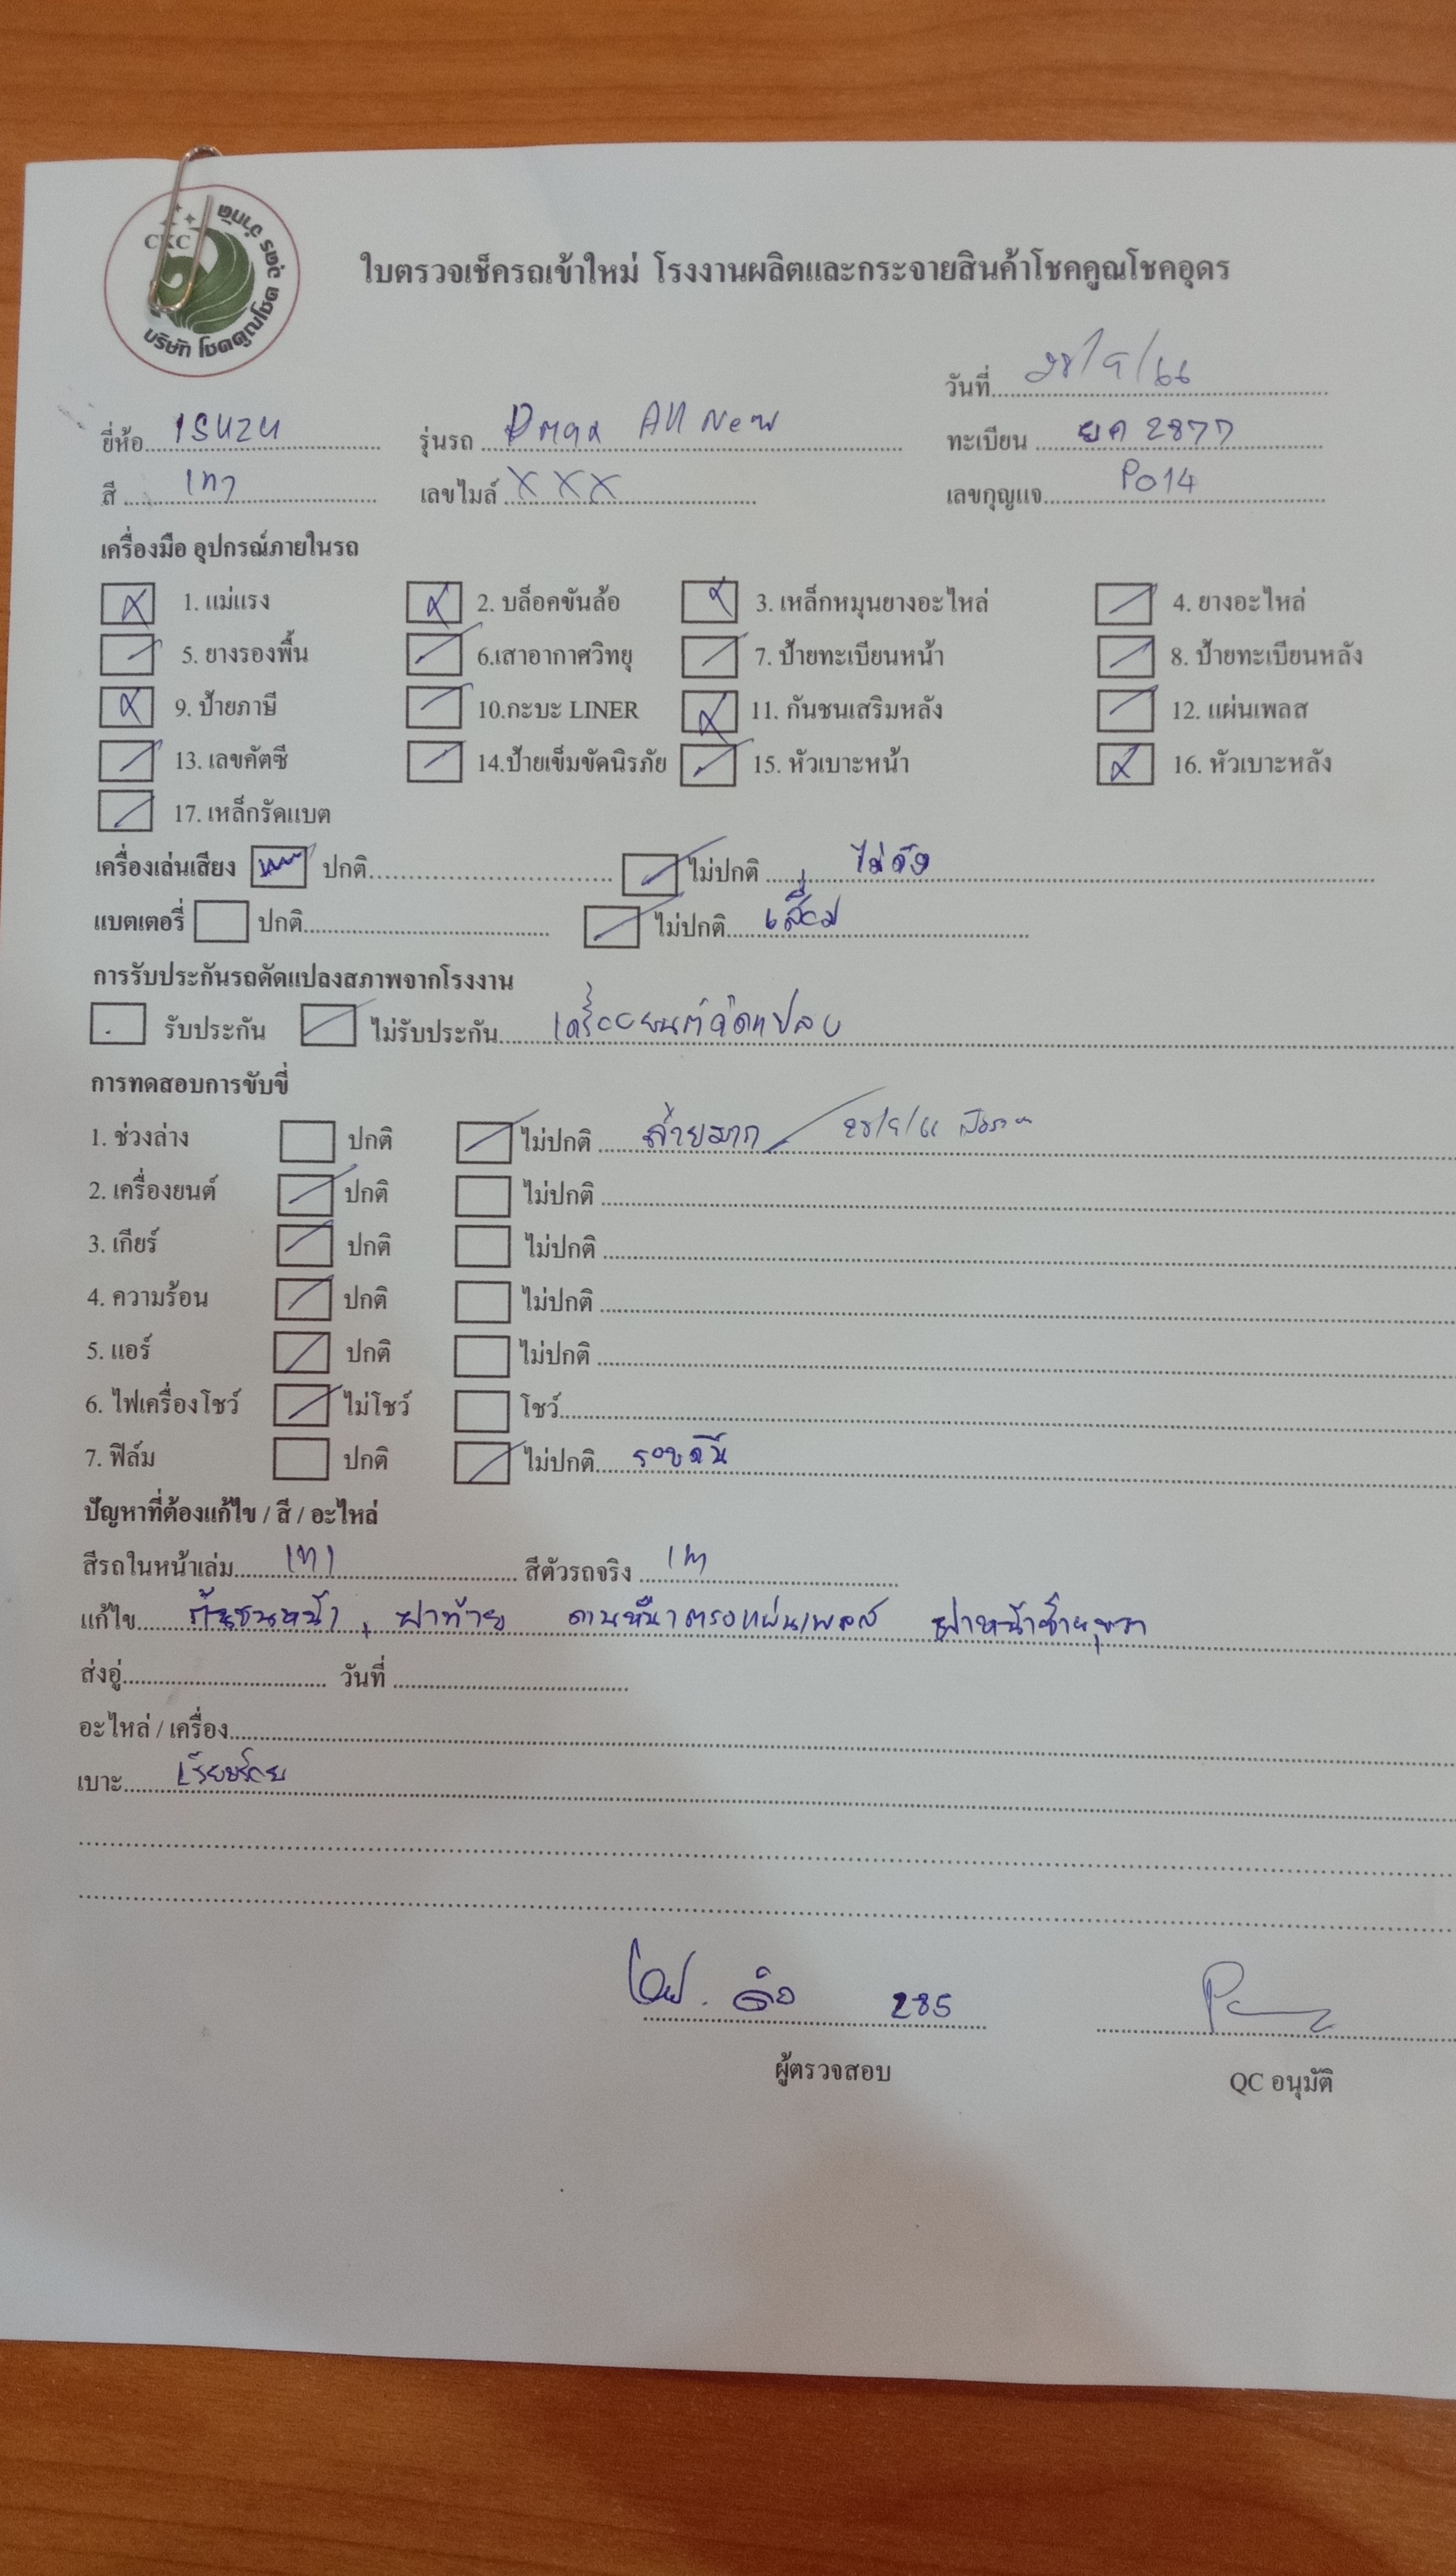 CKC
บริษัท โชคคูณโชค อุดร จำกัด
ใบตรวจเช็ครถเข้าใหม่ โรงงานผลิตและกระจายสินค้าโชคคูณโชคอุดร
วันที่ 28/9/66
ยี่ห้อ ISUZU รุ่นรถ Dmax All New ทะเบียน ยค 2877
สี เทา เลขไมล์ XXX เลขกุญแจ P014
เครื่องมือ อุปกรณ์ภายในรถ
1. แม่แรง 2. บล็อคขันล้อ 3. เหล็กหมุนยางอะไหล่ 4. ยางอะไหล่
5. ยางรองพื้น 6.เสาอากาศวิทยุ 7. ป้ายทะเบียนหน้า 8. ป้ายทะเบียนหลัง
9. ป้ายภาษี 10.กะบะ LINER 11. กันชนเสริมหลัง 12. แผ่นเพลส
13. เลขคัตซี 14.ป้ายเข็มขัดนิรภัย 15. หัวเบาะหน้า 16. หัวเบาะหลัง
17. เหล็กรัดแบต
เครื่องเล่นเสียง ปกติ ไม่ปกติ ไม่ดัง
แบตเตอรี่ ปกติ ไม่ปกติ เสื่อม
การรับประกันรถดัดแปลงสภาพจากโรงงาน
รับประกัน ไม่รับประกัน เครื่องยนต์ดัดแปลง
การทดสอบการขับขี่
1. ช่วงล่าง ปกติ ไม่ปกติ ส่ายมาก 28/9/66
2. เครื่องยนต์ ปกติ ไม่ปกติ
3. เกียร์ ปกติ ไม่ปกติ
4. ความร้อน ปกติ ไม่ปกติ
5. แอร์ ปกติ ไม่ปกติ
6. ไฟเครื่องโชว์ ไม่โชว์ โชว์
7. ฟิล์ม ปกติ ไม่ปกติ รอบคัน
ปัญหาที่ต้องแก้ไข / สี / อะไหล่
สีรถในหน้าเล่ม เทา สีตัวรถจริง เทา
แก้ไข กันชนหน้า, ฝาท้าย คานหน้าตรงแผ่นเพลส
ส่งอู่ วันที่
อะไหล่ / เครื่อง
เบาะ เรียบร้อย
285
ผู้ตรวจสอบ QC อนุมัติ